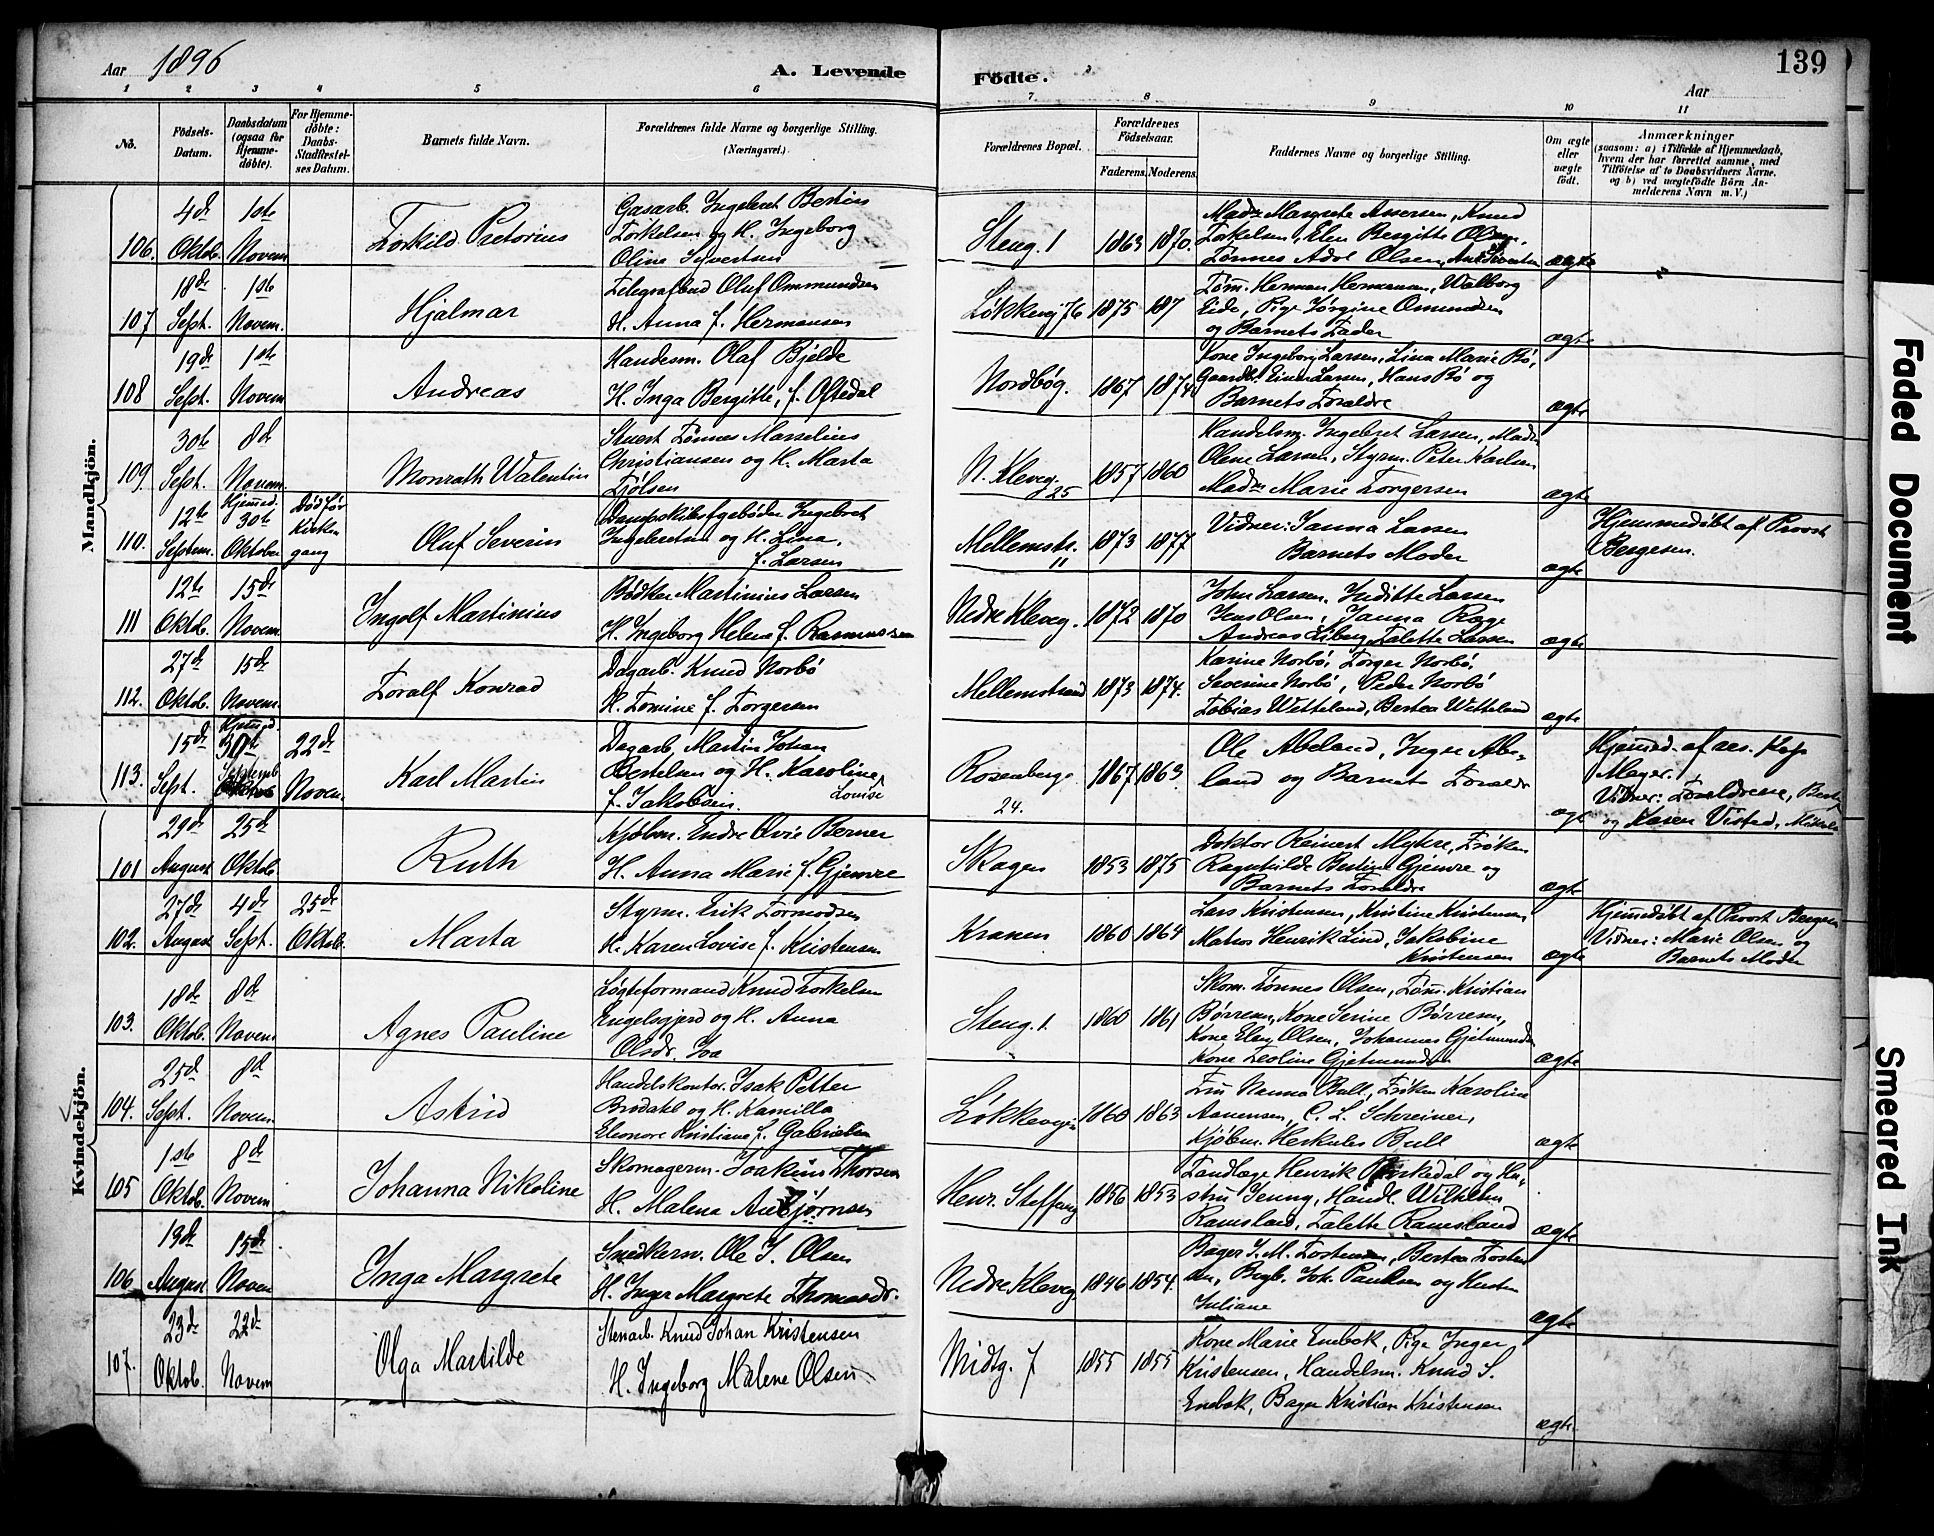 Aar 1896
A. Levende Födte.
Aar
139
1 2 3 4 5 6 7 8 9 10 11
No.
Födsels-Datum.
Daabsdatum (ogsaa for Hjemme-döbte).
For Hjemme-döbte: Daabs-Stadfæstel-ses Datum.
Barnets fulde Navn.
Forældrenes fulde Navne og borgerlige Stilling. (Næringsvei.)
Forældrenes Bopæl.
Forældrenes Födselsaar.
Faderens. Moderens.
Faddernes Navne og borgerlige Stilling.
Om ægte eller uægte födt.
Anmærkninger
(saasom: a) i Tilfælde af Hjemmedaab, hvem der har forrettet samme, med Tilföielse af to Daabsvidners Navne, og b) ved uægtefödte Börn An-melderens Navn m. V.)
Mandkjön.
106. 4de Oktob. 1ste Novem. Torkild Pretorius
Gasarb. Ingebret Bertin
Torkelsen og H. Ingeborg
Oline Syvertsen
Steng. 1 1863 1870.
Madm Margrete Assersen, Knud
Torkelsen, Elen Bergitte Olsen,
Tønnes Adol Olsen, ægte
107 18de Sept. 1ste Novem. Hjalmar
Telegrafbud Oluf Ommundsen
H. Anna f. Hermansen
Løkkevej 76 1875 187
Tøm. Herman Hermansen, Walborg
Eide, Pige Jørgine Osmundsen
og Barnets Fader ægte
108 19de Sept. 1ste Novem Andreas
Handesm. Olaf Bjelde
H. Inga Bergitte, f. Oftedal
Nordbøg. 1867 1874
Kone Ingeborg Larsen, Lina Marie Bø,
Gaardbr. Einar Larsen, Hans Bø og
Barnets Foreldre ægte
109 30te Sept. 8de Novem. Monrath Walentin
Stuert Tønnes Marselius
Christiansen og H. Marta
Tjølsen
N. Kleveg. 25 1857 1860
Handelsm. Ingebret Larsen, Madm
Olene Larsen, Styrm. Peter Karlsen
Madm Marie Torgersen ægte
110. 12te Septem. Hjemmed. 30te Oktober Død før Kirke gang Oluf Severin
Dampskibsfyrbøder Ingebret
Ingebretsen og H. Lina,
f. Larsen
Mellemstr. 11 1873 1877
Vidner: Janna Larsen
Barnets Moder ægte
Hjemmedøbt af Provst
Bergesen.
111 12te Oktob. 15de Novem. Ingolf Martinius
Bødker Martinius Larsen
H. Ingeborg Helene f. Rasmussen
Nedre Kleveg. 1872 1870
John Larsen, Juditte Larsen
Jens Olsen, Janna Rage
Andreas Liberg, Talette Larsen ægte
112. 27de Oktob. 15de Novem. Toralf Konrad
Dagarb. Knud Norbø
H. Tomine f. Torgersen
Mellemstrand 1873 1874.
Karine Norbø, Torger Norbø,
Severine Norbø, Peder Norbø
Tobias Wetteland, Bertea Wetteland ægte
113. 15de Sept. Hjemmed. 30te Septemb 22de Novem. Karl Martin
Dagarb. Martin Johan
Bertelsen og H. Karoline Lovise
f. Jakobsen.
Rosenbergg. 24. 1867 1863
Ole Abeland, Inger Abe-
land og Barnets Foreldre ægte
Hjemmed. af res. Kap
Meyer.
Vidner: Foreldrene,
og Karen Vistad,
Kvindekjön.
101 29de August 25de Oktob. Ruth
Kjøbm. Endre Qvie Berner
H. Anna Marie f. Gjemre
Skagen 1853 1875
Doktor Reinert Mykre, Frøken
Ragnhilde Bertine Gjemre og
Barnets Foreldre ægte
102. 27de August 4de Sept. 25de Oktob. Marta
Styrm. Erik Tormodsen
H. Karen Lovise f. Kristensen
Kranen 1860 1864
Lars Kristensen, Kristine Kristensen
Matros Henrik Lind, Jakobine
Kristensen ægte
Hjemmedøbt af Provst Bergesen
Vidner: Marie Olsen og
Barnets Moder
103. 18de Oktob. 8de Novem. Agnes Pauline
Løgteformand Knud Torkelsen
Engelsgjerd og H. Anna
Olsdr. Joa
Steng. 1. 1860 1861
Skom. Tønnes Olsen, Tøm. Kristian
Børresen, Kone Serine Børresen,
Kone Elen Olsen, Johannes Gjetmundsen
Kone Teoline Gjetmundsen ægte
104. 25de Sept. 8de Novem. Astrid
Handelskontor. Isak Petter
Brodahl og H. Kamilla
Eleonore Kristiane f. Gabrielsen
Løkkevejen 1860 1863
Fru Nanna Bull, Frøken Karoline
Aanensen, C. L. Schreiner,
Kjøbm. Herkules Bull ægte
105 1ste Oktob. 8de Novem Johanna Nikoline
Skomagerm. Joakim Thorsen
H. Malena Aubjørnsen
Henr. Steffensg 1856 1853
Tandlæge Henrik Kirkedal og Hu-
stru Jenny, Handl. Wilhelm
Ramsland, Talette Ramsland ægte
106 19de August 15de Novem Inga Margrete
Snedkersv. Ole J. Olsen
H. Inger Margrete Thomasdr.
Nedre Kleveg. 1846 1854.
Bager J. M. Tostensen, Bertea Tosten
sen, Bogb. Joh. Paulsen og Hustru
Juliane ægte
107. 23de Oktob. 22de Novem Olga Martilde
Stenarb. Knud Johan Kristensen
H. Ingeborg Malene Olsen
Midtg. 7 1855 1855
Kone Marie Enebok, Pige Inger
Kristensen, Handelsm. Knud S.
Enebok, Bager Kristian Kristensen
ægte.
Faded Document
Smeared Ink